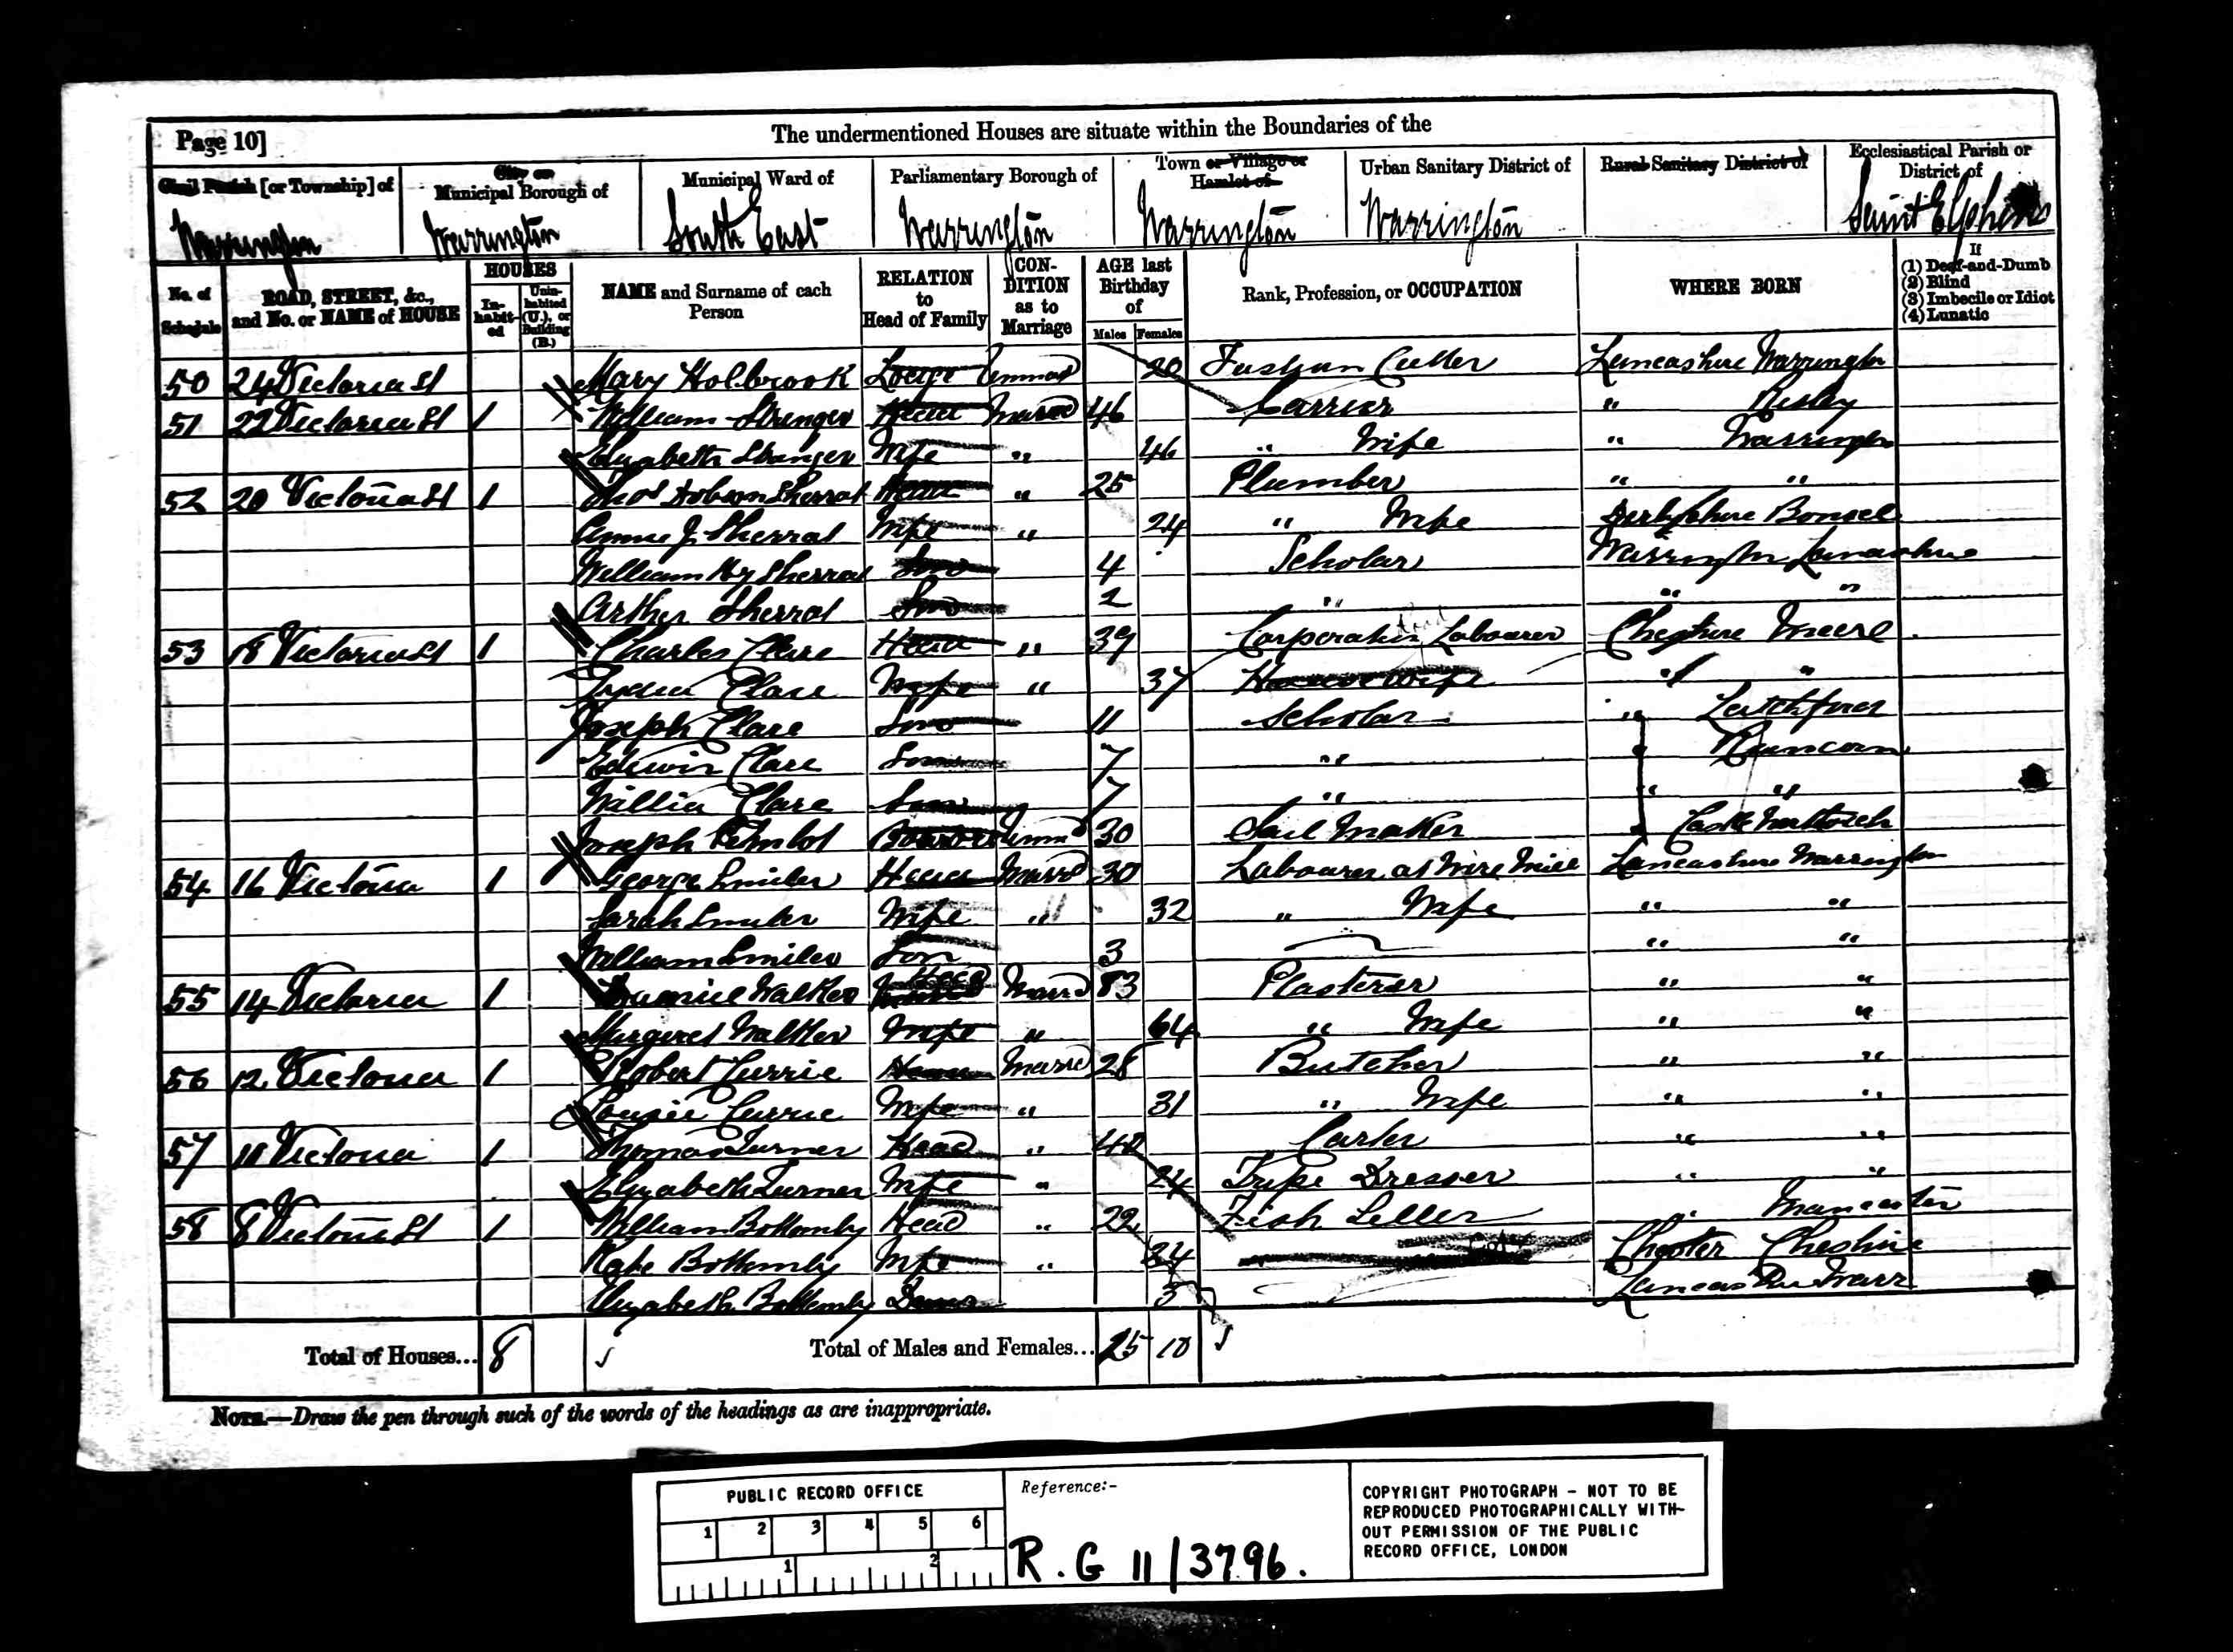 Page 10]
The undermentioned Houses are situate within the Boundaries of the
Civil Parish [or Township] of
City or Municipal Borough of
Municipal Ward of
Parliamentary Borough of
Town or Village or Hamlet of
Urban Sanitary District of
Rural Sanitary District of
Ecclesiastical Parish or District of
Warrington Warrington South East Warrington Warrington Warrington Saint Elphins
No. of Schedule
ROAD, STREET, &c., and No. or NAME of HOUSE
HOUSES
Inhabited
Uninhabited (U.), or Building (B.)
NAME and Surname of each Person
RELATION to Head of Family
CONDITION as to Marriage
AGE last Birthday of
Males Females
Rank, Profession, or OCCUPATION
WHERE BORN
If
(1) Deaf-and-Dumb
(2) Blind
(3) Imbecile or Idiot
(4) Lunatic
50 24 Victoria St Mary Holbrook 20 Fustian Cutter Lancashire Warrington
51 22 Victoria St 1 William Stringer Head Marrd 46 Carrier " Risley
Elizabeth Stringer Wife " 46 " Wife " Warrington
52 20 Victoria St 1 Thos Hobson Sherrat Head " 25 Plumber " "
Annie J. Sherrat Wife " 24 " Wife Derbyshire Bonsel
William Hy Sherrat Son 4 Scholar Warrington Lancashire
Arther Sherrat Son 2 " " "
53 18 Victoria St 1 Charles Clare Head " 39 Corporation Labourer Cheshire Meere
Lydia Clare Wife " 37 House Wife " "
Joseph Clare Son 11 Scholar " Latchford
Edwin Clare Son 7 " " Runcorn
Willie Clare Son 7 " " "
Joseph Boarder Unm 30 Sail Maker
54 16 Victoria 1 George Smiler Head Marrd 30 Labourer at Wire Mill Lancashire Warrington
Sarah Smiler Wife " 32 " Wife " "
William Smiler Son 3 " "
55 14 Victoria 1 Walker Head Marrd 83 Plasterer " "
Margaret Walker Wife " 64 " Wife " "
56 12 Victoria 1 Robert Currie Head Marrd 28 Butcher " "
Louise Currie Wife " 31 " Wife " "
57 10 Victoria 1 Thomas Turner Head " Carter " "
Elizabeth Turner Wife " 24 Tripe Dresser " "
58 8 Victoria St 1 William Bottomby Head " 29 Fish Seller " Mancester
Kate Bottomby Wife " 24 Chester Cheshire
Elizabeth Bottomby Daur 3 Lancashire Warr
Total of Houses... 8 Total of Males and Females... 15 10
NOTE.—Draw the pen through such of the words of the headings as are inappropriate.
PUBLIC RECORD OFFICE
1 2 3 4 5 6
1 2
Reference:-
R.G 11/3796.
COPYRIGHT PHOTOGRAPH - NOT TO BE
REPRODUCED PHOTOGRAPHICALLY WITH-
OUT PERMISSION OF THE PUBLIC
RECORD OFFICE, LONDON